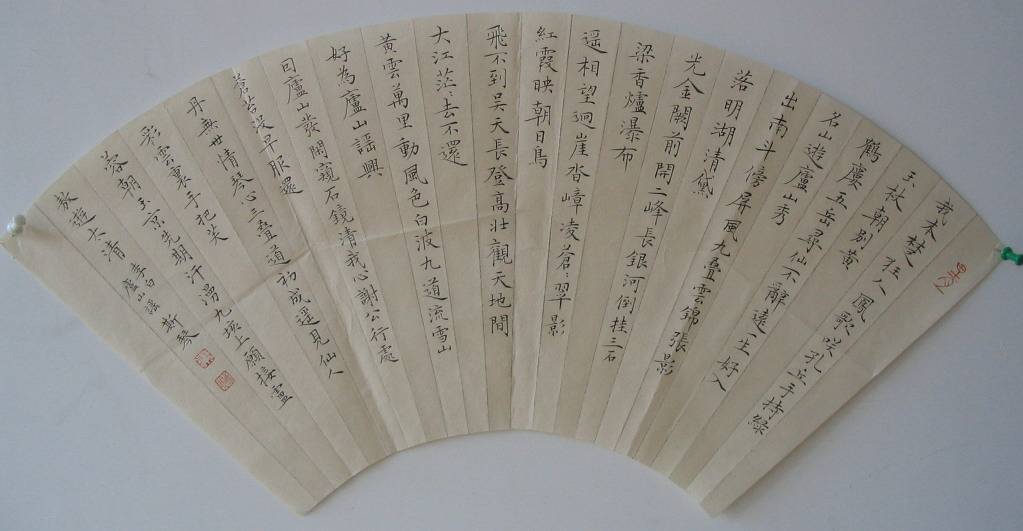 我本楚狂人鳳歌咲孔丘手持綠
玉枚朝別黄
鶴慶五岳尋仙不辭遠生好入
名山遊廬山秀
出南斗傍屏風九叠雲錦張影
落明湖清黛
光金闕前開二峰長銀河倒挂三石
梁香爐瀑布
遥相望廻崖沓嶂凌蒼〻翠影
紅霞映朝日鳥
飛不到吴天長登高壯觀天地間
大江茫〻去不還
黄雲萬里動風色白波九道流雪山
好為廬山謡興
回廬山發閑窺石鏡清我心謝公行處
蒼苔没早服還
丹無世情琴心三叠道初成遥見仙人
彩雲裏手把芙
蓉朝玉京先期汗漫九垓上願接盧
敖遊太清
李白
廬山謡
斯琴